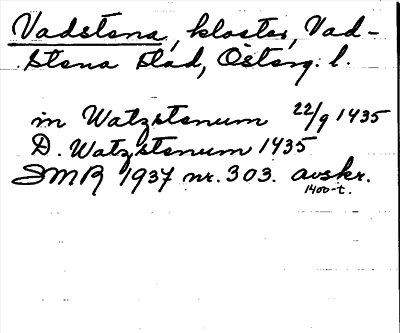 Vadstena, kloster, Vad-
stena stad, Österg. l.
in Watzstenum 22/9 1435
D. Watzstenum 1435
SMR 1937 nr. 303. avskr.
1400-t.